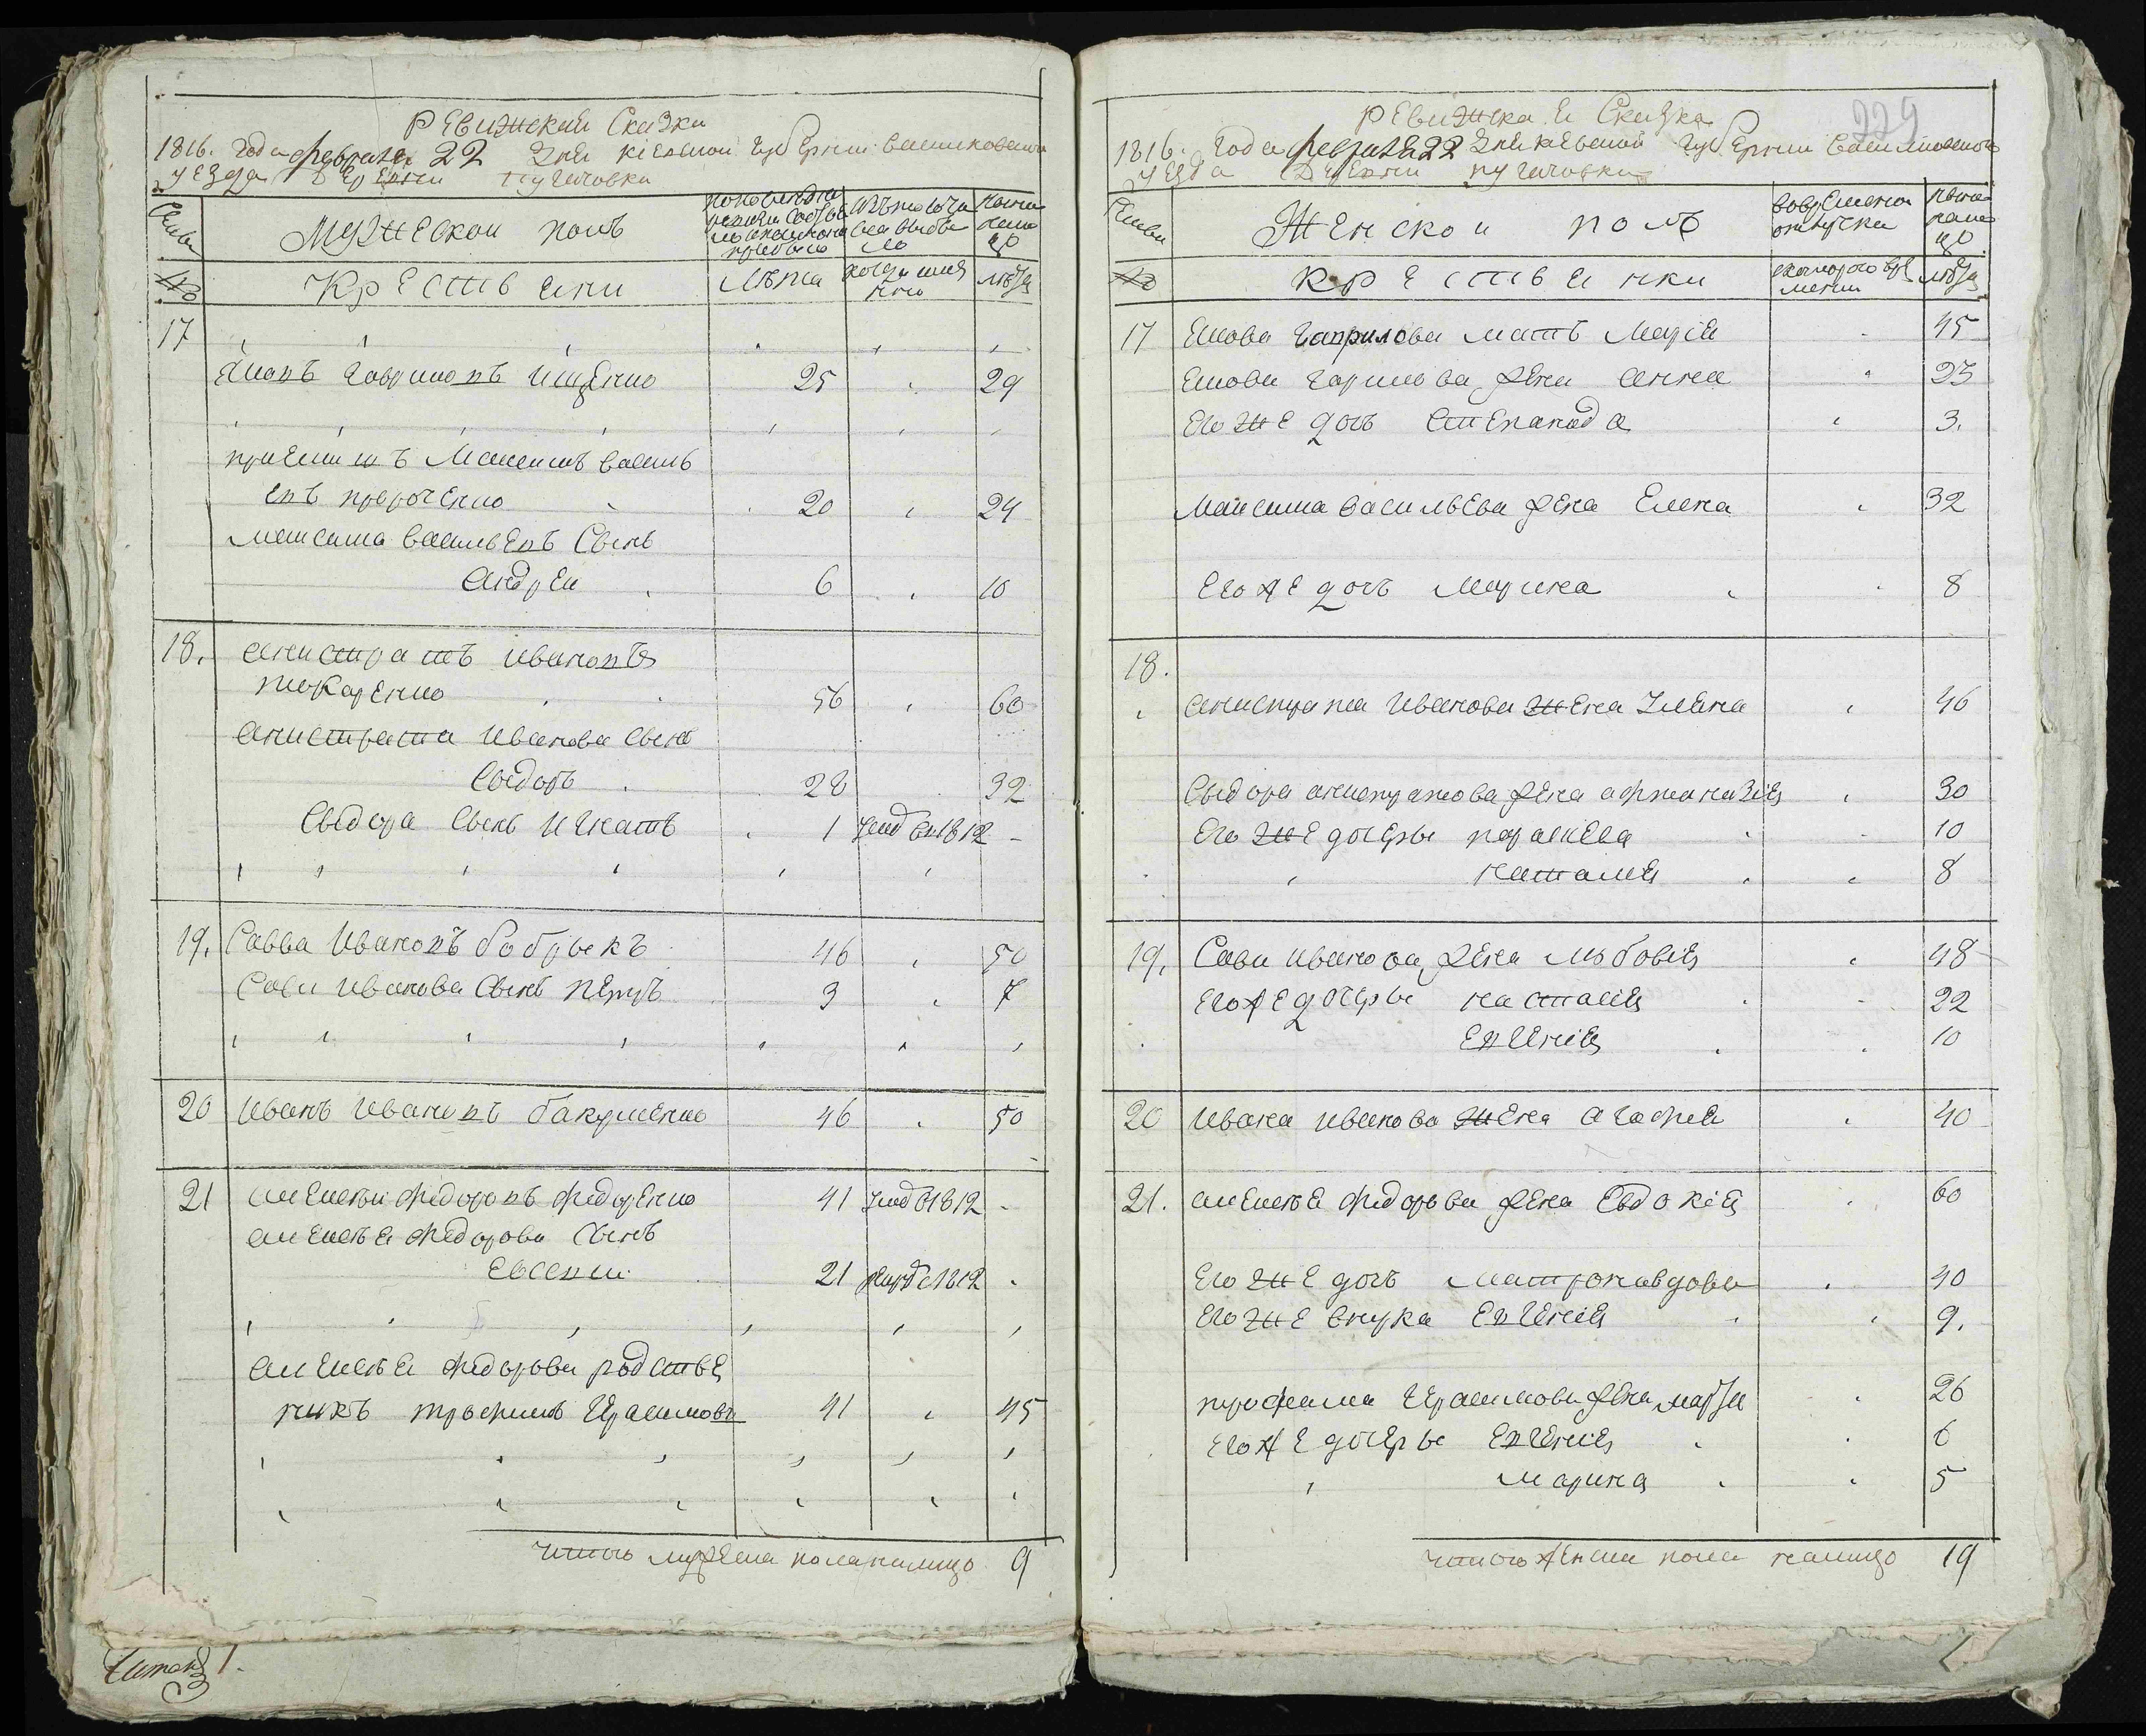 Ревижская Сказка
1816. Года февраля 22 дня киевской губернии васильковского
уезда деревни пугачовки
Семьи
Мужеской полъ
по последней ревизии состояло и после оной прибыло
Изъ того числа выбыло
ныне налицо
№
Крестьяни
Лѣта
когда именно
лѣта
17
Яковъ Гавриловъ Ищенко 25 29
приемишъ Максимъ василь
евъ προроченко 20 24
максима васильевъ Сынъ
Андрей 6 10
18. Анистратъ ивановъ
токаренко 56 60
Анистрата иванова сынъ
Сыдоръ 28 32
Сыдора Сынъ игнатъ 1 умеръ въ 1812
19. Савва Ивановъ бобрыкъ 46 50
Савы иванова Сынъ петръ 3 7
20 Иванъ Ивановъ бакуменко 46 50
21 алексѣй федоровъ федоренко 41 умеръ въ 1812
алексѣя федорова Сынъ
Евсевий 21 1812
алексѣя федорова родстве
никъ трофимъ Герасимовъ 41 45
Итого мужеска пола налицо 9
Читалъ
229
Ревижская Сказка
1816. Года февраля 22 дня киевской губернии васильковского
уезда Деревни пугачовки
Семьи
Женской полъ
вовременной отлучке
ныне налицо
№
крестьянки
скоторого времени
лѣта
17 Якова гаврилова мать Марія 45
Якова гаврилова жена анна 23
Его же дочь Степанида 3.
Максима васильева жена Елена 32
Его же дочь марина 8
18.
анистрата иванова жена Уляна 46
Сыдора анистратова жена афтаназія 30
Его же дочеры параскева 10
наталія 8
19. Савы иванова жена любовія 48
Его же дочеры настасія 22
Евгенія 10
20 Ивана иванова жена агафія 40
21. алексѣя федорова жена Евдокія 60
Его же дочь матрона вдова 40
Его же внука Евгенія 9.
трофима Герасимова жена марья 26
Его же дочеры Евгенія 6
марина 5
Итого женска пола налицо 19